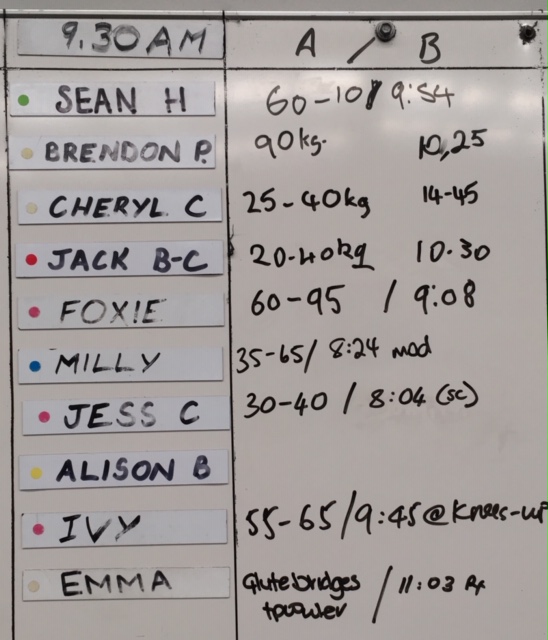 9.30AM A / B
SEAN H 60-10 / 9:54
BRENDON P. 90kg. 10,25
CHERYL C 25-40kg 14-45
JACK B-C 20-40kg 10.30
FOXIE 60-95 / 9:08
MILLY 35-65/ 8:24 mod
JESS C 30-40 / 8:04 (sc)
ALISON B
IVY 55-65/9:45@Knees-up
EMMA Glutebridges / 11:03